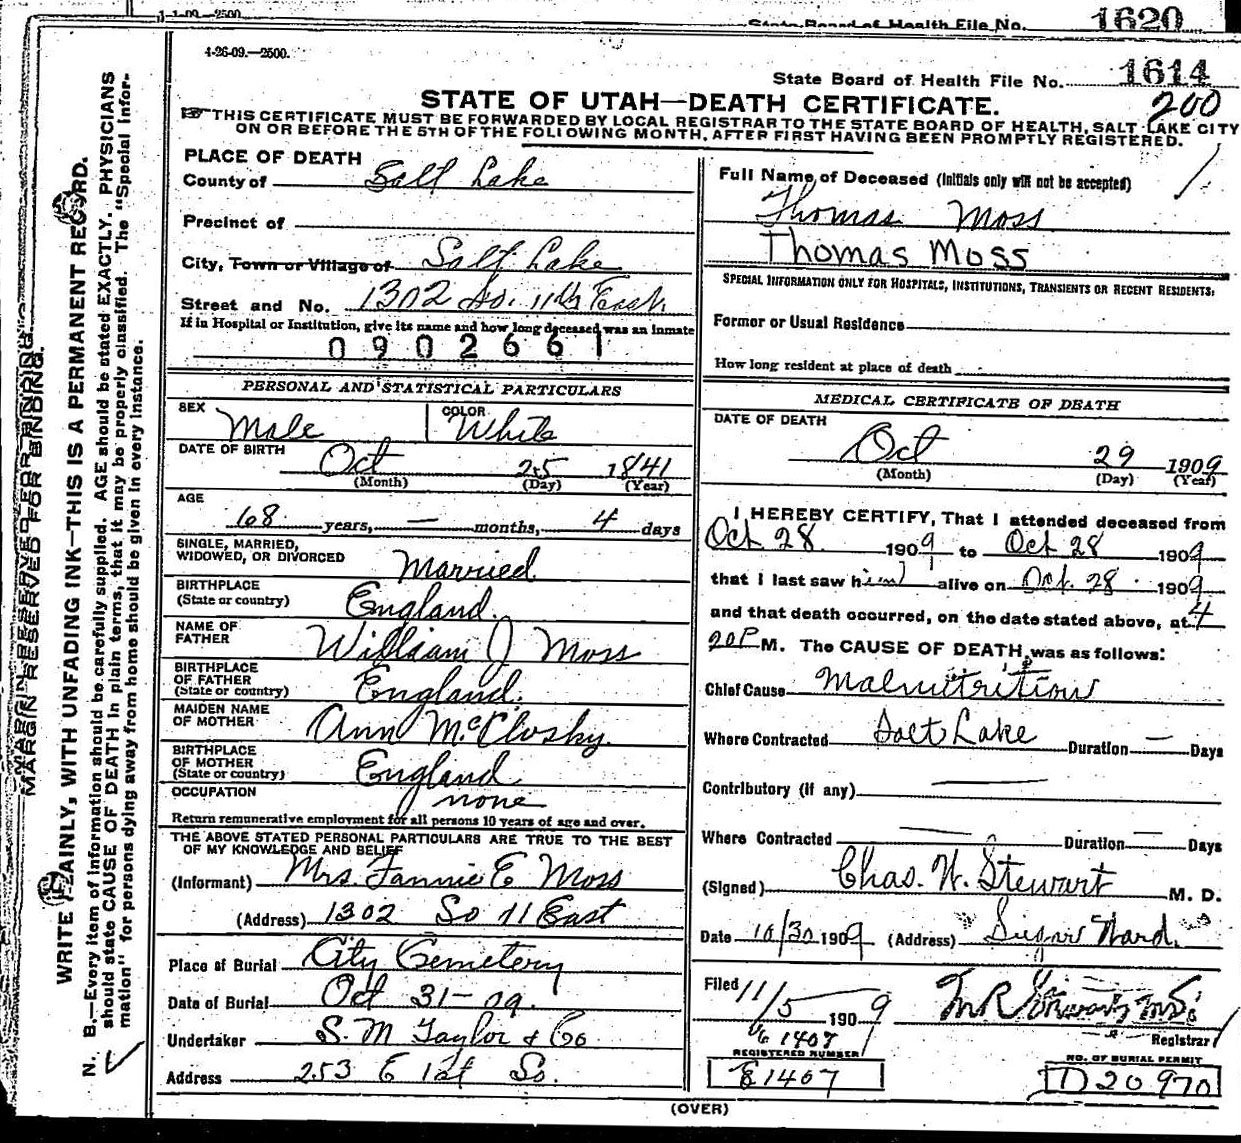 1-1-09—2500
State Board of Health File No. 1620
4-26-09.—2500.
State Board of Health File No. 1614
STATE OF UTAH—DEATH CERTIFICATE.
200
THIS CERTIFICATE MUST BE FORWARDED BY LOCAL REGISTRAR TO THE STATE BOARD OF HEALTH, SALT LAKE CITY
ON OR BEFORE THE 5TH OF THE FOLLOWING MONTH, AFTER FIRST HAVING BEEN PROMPTLY REGISTERED.
MARGIN RESERVED FOR BINDING.
WRITE PLAINLY, WITH UNFADING INK—THIS IS A PERMANENT RECORD.
N. B.—Every item of information should be carefully supplied. AGE should be stated EXACTLY. PHYSICIANS
should state CAUSE OF DEATH in plain terms, that it may be properly classified. The "Special Infor-
mation" for persons dying away from home should be given in every instance.
PLACE OF DEATH
County of Salt Lake
Precinct of
City, Town or Village of Salt Lake
Street and No. 1302 So. 11th East
If in Hospital or Institution, give its name and how long deceased was an inmate
0902661
PERSONAL AND STATISTICAL PARTICULARS
SEX Male COLOR White
DATE OF BIRTH Oct 25 1841
(Month) (Day) (Year)
AGE 68 years, — months, 4 days
SINGLE, MARRIED,
WIDOWED, OR DIVORCED Married
BIRTHPLACE
(State or country) England.
NAME OF
FATHER William J Moss
BIRTHPLACE
OF FATHER
(State or country) England.
MAIDEN NAME
OF MOTHER Ann McClosky.
BIRTHPLACE
OF MOTHER
(State or country) England
OCCUPATION none
Return remunerative employment for all persons 10 years of age and over.
THE ABOVE STATED PERSONAL PARTICULARS ARE TRUE TO THE BEST
OF MY KNOWLEDGE AND BELIEF
(Informant) Mrs. Fannie E Moss
(Address) 1302 So 11 East
Place of Burial City Cemetery
Date of Burial Oct 31-09.
Undertaker S. M Taylor & Co
Address 253 E 1st So.
Full Name of Deceased (Initials only will not be accepted)
Thomas Moss
Thomas Moss
SPECIAL INFORMATION ONLY FOR HOSPITALS, INSTITUTIONS, TRANSIENTS OR RECENT RESIDENTS:
Former or Usual Residence
How long resident at place of death
MEDICAL CERTIFICATE OF DEATH
DATE OF DEATH
Oct 29 1909
(Month) (Day) (Year)
I HEREBY CERTIFY, That I attended deceased from
Oct 28 1909 to Oct 28 1909
that I last saw him alive on Oct. 28 1909
and that death occurred, on the date stated above, at 4
20 P M. The CAUSE OF DEATH was as follows:
Chief Cause Malnutrition
Where Contracted Salt Lake Duration — Days
Contributory (if any) —
Where Contracted — Duration — Days
(Signed) Chas. W. Stewart M. D.
Date 10/30 1909 (Address) Sugar Ward.
Filed 11/5 1909
Registrar
E 1407
REGISTERED NUMBER
E1407
NO. OF BURIAL PERMIT
D20970
(OVER)